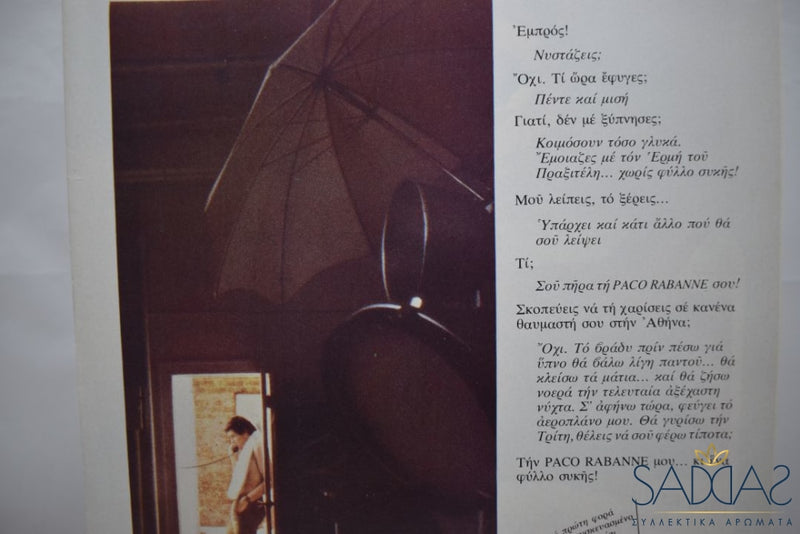 Ἐμπρός!
Νυστάζεις;
Ὄχι. Τί ὥρα ἔφυγες;
Πέντε καί μισή
Γιατί, δέν μέ ξύπνησες;
Κοιμόσουν τόσο γλυκά.
Ἔμοιαζες μέ τόν Ἑρμή τοῦ
Πραξιτέλη... χωρίς φύλλο συκῆς!
Μοῦ λείπεις, τό ξέρεις...
Ὑπάρχει καί κάτι ἄλλο πού θά
σοῦ λείψει
Τί;
Σοῦ πῆρα τή PACO RABANNE σου!
Σκοπεύεις νά τή χαρίσεις σέ κανένα
θαυμαστή σου στήν Ἀθήνα;
Ὄχι. Τό βράδυ πρίν πέσω γιά
ὕπνο θά βάλω λίγη παντοῦ... θά
κλείσω τά μάτια... καί θά ζήσω
νοερά τήν τελευταία ἀξέχαστη
νύχτα. Σ' ἀφήνω τώρα, φεύγει τό
ἀεροπλάνο μου. Θά γυρίσω τήν
Τρίτη, θέλεις νά σοῦ φέρω τίποτα;
Τήν PACO RABANNE μου... κι ἕνα
φύλλο συκῆς!
SADDAS
ΣΥΛΛΕΚΤΙΚΑ ΑΡΩΜΑΤΑ
πρώτη φορά